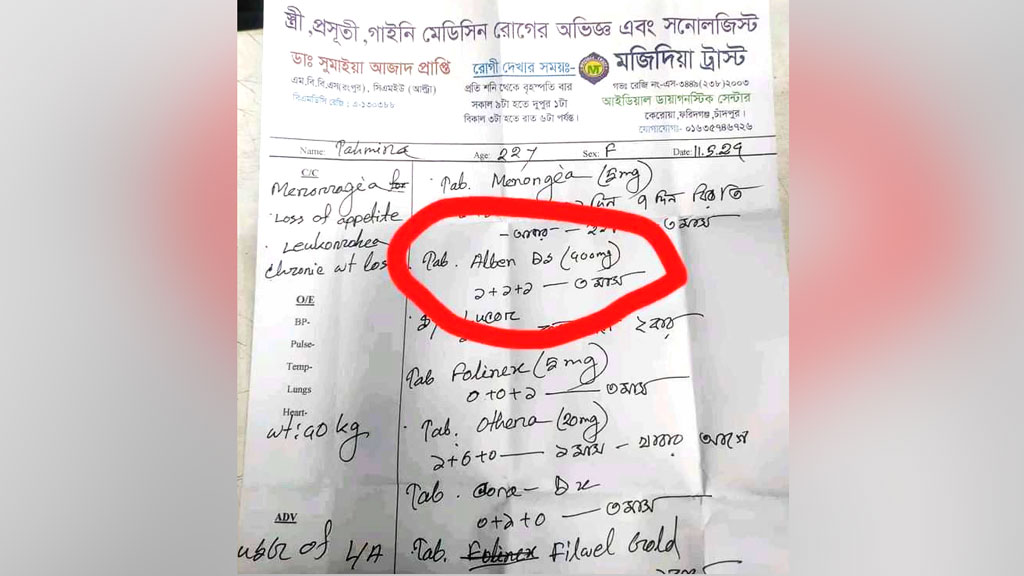 স্ত্রী,প্রসূতী,গাইনি মেডিসিন রোগের অভিজ্ঞ এবং সনোলজিস্ট
ডাঃ সুমাইয়া আজাদ প্রাপ্তি
এম.বি.বি.এস(রংপুর), সিএমইউ (আল্ট্রা)
বিএমডিসি রেজি : এ-১৩০৩৮৮
রোগী দেখার সময়ঃ-
প্রতি শনি থেকে বৃহস্পতি বার
সকাল ৯টা হতে দুপুর ১টা
বিকাল ৩টা হতে রাত ৬টা পর্যন্ত।
মজিদিয়া ট্রাস্ট
গভঃ রেজি নং-এস-৩৪৪৯(২৩৮)২০০৩
আইডিয়াল ডায়াগনস্টিক সেন্টার
কেরোয়া,ফরিদগঞ্জ,চাঁদপুর।
যোগাযোগঃ- ০১৬৩৫৭৪৬৭২৬
Name: Tahmina Age: 22y Sex: F Date: 11.5.24
C/C
Menorragea
Loss of appetite
Leukorrohea
Chronic wt loss
O/E
BP-
Pulse-
Temp-
Lungs
Heart-
wt: 40 kg
ADV
of L/A
Tab. Menongea (5mg)
দিন ৭ দিন বিরতি
৩ মাস
Tab. Alben Ds (400mg)
১+১+১ — ৩ মাস
Tab Folinex (5mg)
0+0+১ — ৩ মাস
Tab. Othera (20mg)
১+0+0 — ১ মাস - খাবার আগে
Tab. Dx
0+১+0 — ৩ মাস
Tab. Filwel Gold